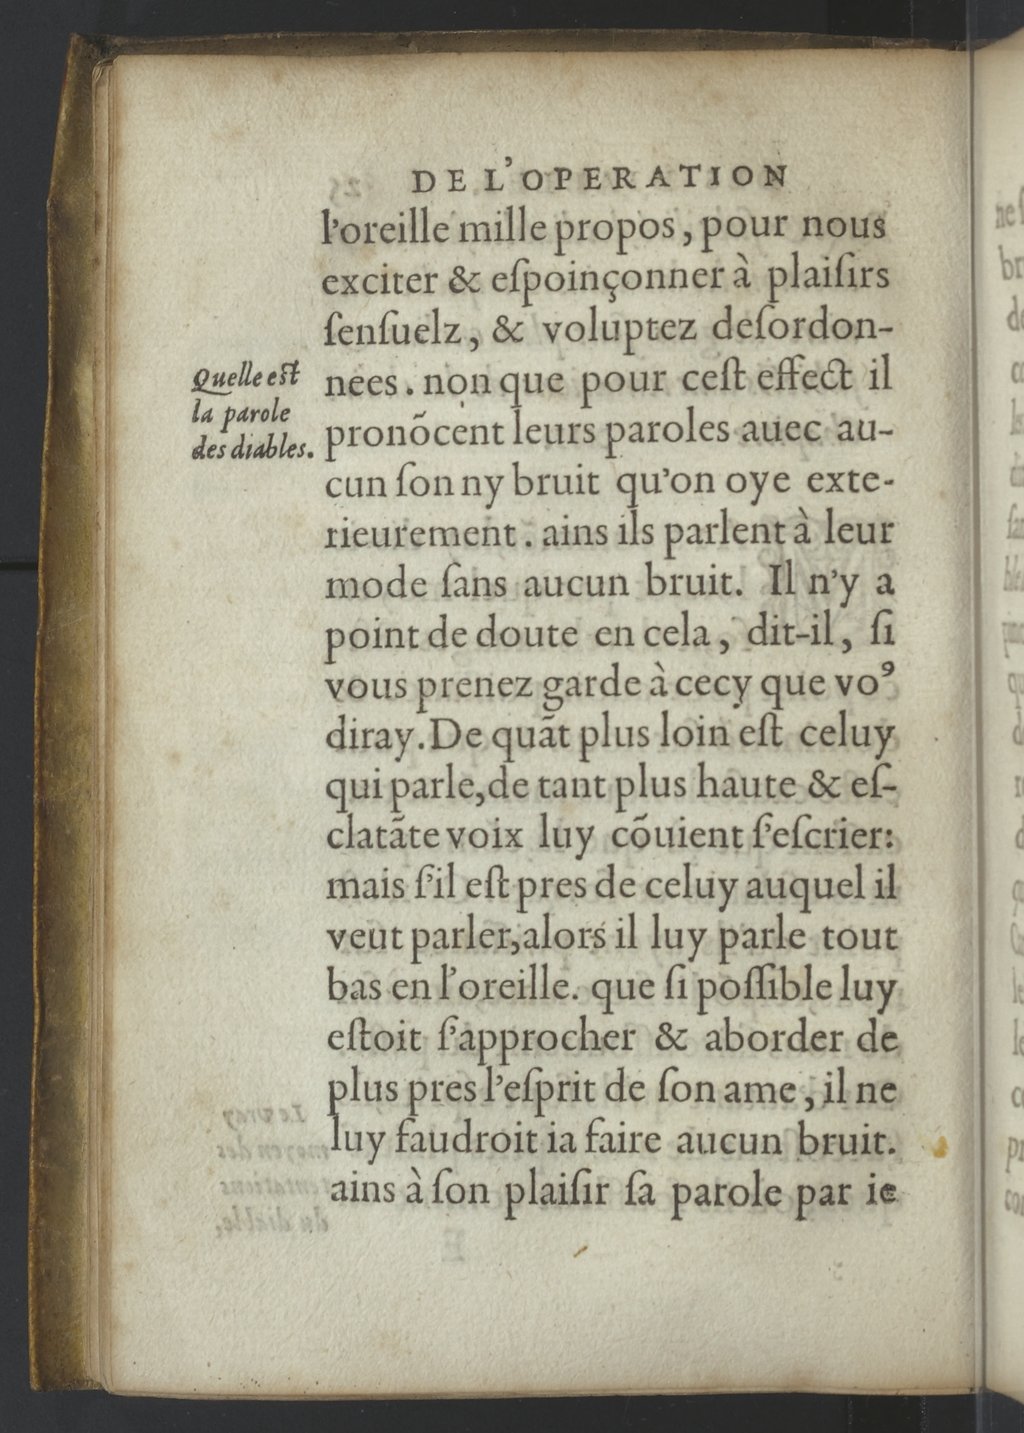 DE L'OPERATION
l'oreille mille propos, pour nous
exciter & eſpoinçonner à plaiſirs
ſenſuelz, & voluptez deſordon-
nees. non que pour ceſt effect il
pronõcent leurs paroles auec au-
cun ſon ny bruit qu'on oye exte-
rieurement. ains ils parlent à leur
mode ſans aucun bruit. Il n'y a
point de doute en cela, dit-il, ſi
vous prenez garde à cecy que voꝰ
diray. De quãt plus loin eſt celuy
qui parle, de tant plus haute & eſ-
clatãte voix luy cõuient ſ'eſcrier:
mais ſ'il eſt pres de celuy auquel il
veut parler, alors il luy parle tout
bas en l'oreille. que ſi poſſible luy
eſtoit ſ'approcher & aborder de
plus pres l'eſprit de ſon ame, il ne
luy faudroit ia faire aucun bruit.
ains à ſon plaiſir ſa parole par ie
Quelle eſt
la parole
des diables.